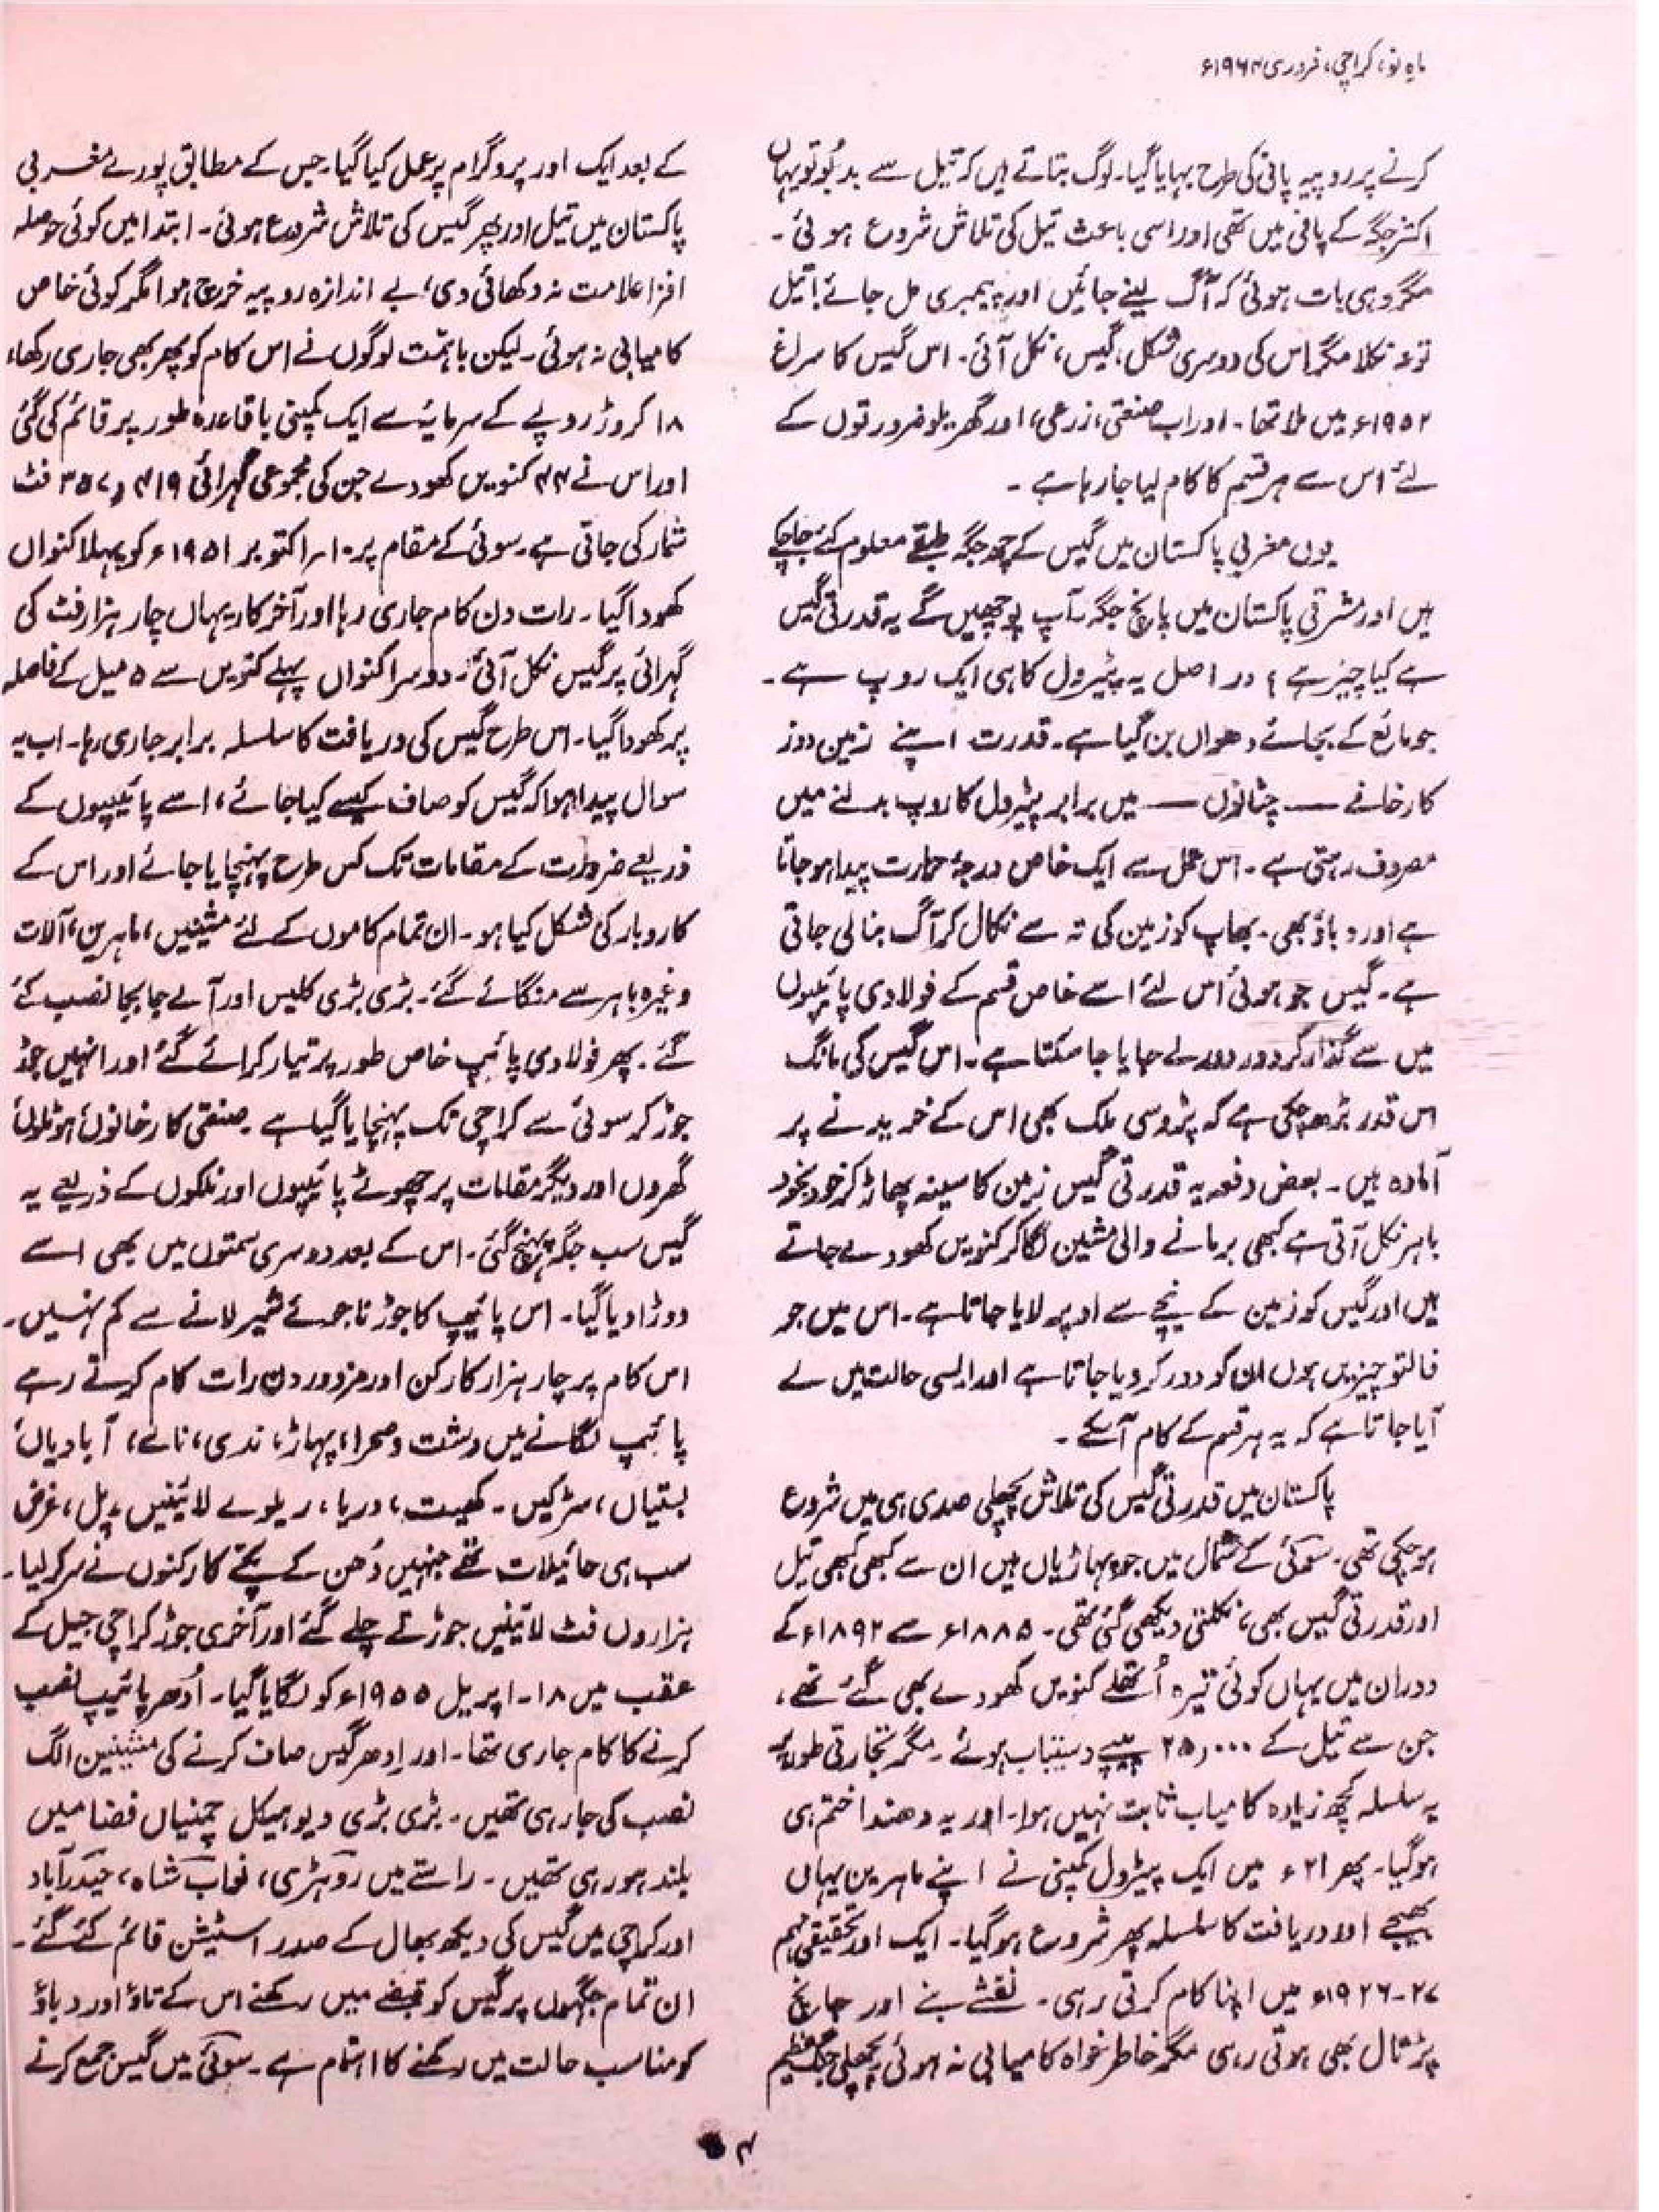 ماہِ نو، کراچی، فروری ۱۹۶۴ء
کرنے پر روپیہ پانی کی طرح بہایا گیا۔ لوگ بتاتے ہیں کہ تیل سے بدبُو تو یہاں
اکثر جگہ کے پانی میں تھی اور اسی باعث تیل کی تلاش شروع ہوئی۔
مگر وہی بات ہوئی کہ آگ لینے جائیں اور پیمبری مل جائے! تیل
تو نہ نکلا مگر اس کی دوسری شکل، گیس، نکل آئی۔ اس گیس کا سراغ
۱۹۵۲ء میں ملا تھا۔ اور اب صنعتی، زرعی، اور گھریلو ضرورتوں کے
لئے اس سے ہر قسم کا کام لیا جا رہا ہے۔
یوں مغربی پاکستان میں گیس کے چھ جگہ طبقے معلوم کئے جا چکے
ہیں اور مشرقی پاکستان میں پانچ جگہ۔ آپ پوچھیں گے یہ قدرتی گیس
ہے کیا چیز ہے؟ در اصل یہ پٹیرول کا ہی ایک روپ ہے۔
جو مائع کے بجائے دھواں بن گیا ہے۔ قدرت اپنے زمین دوز
کارخانے — چٹانوں — میں برابر پٹیرول کا روپ بدلنے میں
مصروف رہتی ہے۔ اس عمل سے ایک خاص درجۂ حرارت پیدا ہو جاتا
ہے اور دباؤ بھی۔ بھاپ کو زمین کی تہ سے نکال کر آگ بنا لی جاتی
ہے۔ گیس جو ہوئی اس لئے اسے خاص قسم کے فولادی پائیپوں
میں سے گذار کر دور دور لے جایا جا سکتا ہے۔ اس گیس کی مانگ
اس قدر بڑھ چکی ہے کہ پڑوسی ملک بھی اس کے خریدنے پر
آمادہ ہیں۔ بعض دفعہ یہ قدرتی گیس زمین کا سینہ پھاڑ کر خود بخود
باہر نکل آتی ہے کبھی برمانے والی مشین لگا کر کنویں کھودے جاتے
ہیں اور گیس کو زمین کے نیچے سے اوپر لایا جاتا ہے۔ اس میں جو
فالتو چیزیں ہوں ان کو دور کر دیا جاتا ہے اور ایسی حالت میں لے
آیا جاتا ہے کہ یہ ہر قسم کے کام آ سکے۔
پاکستان میں قدرتی گیس کی تلاش پچھلی صدی ہی میں شروع
ہو چکی تھی۔ سوئی کے شمال میں جو پہاڑیاں ہیں ان سے کبھی کبھی تیل
اور قدرتی گیس بھی، نکلتی دیکھی گئی تھی۔ ۱۸۸۵ء سے ۱۸۹۲ء کے
دوران میں یہاں کوئی تیرہ اُتھلے کنویں کھودے بھی گئے تھے،
جن سے تیل کے ۲۵,۰۰۰ پیپے دستیاب ہوئے۔ مگر تجارتی طور پر
یہ سلسلہ کچھ زیادہ کامیاب ثابت نہیں ہوا۔ اور یہ دھندا ختم ہی
ہو گیا۔ پھر ۲۱ء میں ایک پٹیرول کمپنی نے اپنے ماہرین یہاں
بھیجے اور دریافت کا سلسلہ پھر شروع ہو گیا۔ ایک اور تحقیقی مہم
۲۷-۱۹۲۶ء میں اپنا کام کرتی رہی۔ نقشے بنے اور جانچ
پڑتال بھی ہوتی رہی مگر خاطر خواہ کامیابی نہ ہوئی۔ پچھلی جنگ عظیم
کے بعد ایک اور پروگرام پر عمل کیا گیا۔ جس کے مطابق پورے مغربی
پاکستان میں تیل اور پھر گیس کی تلاش شروع ہوئی۔ ابتدا میں کوئی حوصلہ
افزا علامت نہ دکھائی دی، بے اندازہ روپیہ خرچ ہوا مگر کوئی خاص
کامیابی نہ ہوئی۔ لیکن باہمّت لوگوں نے اس کام کو پھر بھی جاری رکھا،
۱۸ کروڑ روپے کے سرمایئے سے ایک کمپنی باقاعدہ طور پر قائم کی گئی
اور اس نے ۴۴ کنویں کھودے جن کی مجموعی گہرائی فٹ
شمار کی جاتی ہے۔ سوئی کے مقام پر ۱۰ر اکتوبر ۱۹۵۱ء کو پہلا کنواں
کھودا گیا۔ رات دن کام جاری رہا اور آخر کار یہاں چار ہزار فٹ کی
گہرائی پر گیس نکل آئی۔ دوسرا کنواں پہلے کنویں سے ۵ میل کے فاصلہ
پر کھودا گیا۔ اس طرح گیس کی دریافت کا سلسلہ برابر جاری رہا۔ اب یہ
سوال پیدا ہوا کہ گیس کو صاف کیسے کیا جائے، اسے پائیپوں کے
ذریعے ضرورت کے مقامات تک کس طرح پہنچایا جائے اور اس کے
کاروبار کی شکل کیا ہو۔ ان تمام کاموں کے لئے مشینیں، ماہرین، آلات
وغیرہ باہر سے منگائے گئے۔ بڑی بڑی کلیں اور آلے جا بجا نصب کئے
گئے۔ پھر فولادی پائیپ خاص طور پر تیار کرائے گئے اور انہیں جوڑ
جوڑ کر سوئی سے کراچی تک پہنچایا گیا ہے۔ صنعتی کارخانوں، ہوٹلوں،
گھروں اور دیگر مقامات پر چھوٹے پائیپوں اور نلکوں کے ذریعے یہ
گیس سب جگہ پہنچ گئی۔ اس کے بعد دوسری سمتوں میں بھی اسے
دوڑا دیا گیا۔ اس پائیپ کا جوڑنا جوئے شیر لانے سے کم نہیں۔
اس کام پر چار ہزار کارکن اور مزدور دن رات کام کرتے رہے
پائیپ لگانے میں دشت و صحرا، پہاڑ، ندی، نالے، آبادیاں،
بستیاں، سڑکیں۔ کھیت، دریا، ریلوے لائینیں، پل، غرض
سب ہی حائیلات تھے جنہیں دُھن کے پکّے کارکنوں نے سر کر لیا۔
ہزاروں فٹ لائینیں جوڑتے چلے گئے اور آخری جوڑ کراچی جیل کے
عقب میں ۱۸۔ اپریل ۱۹۵۵ء کو لگایا گیا۔ اُدھر پائیپ نصب
کرنے کا کام جاری تھا۔ اور اِدھر گیس صاف کرنے کی مشینیں الگ
نصب کی جا رہی تھیں۔ بڑی بڑی دیو ہیکل چمنیاں فضا میں
بلند ہو رہی تھیں۔ راستے میں روہڑی، نواب شاہ، حیدرآباد
اور کراچی میں گیس کی دیکھ بھال کے صدر اسٹیشن قائم کئے گئے۔
ان تمام جگہوں پر گیس کو قبضے میں رکھنے اس کے تاؤ اور دباؤ
کو مناسب حالت میں رکھنے کا اہتمام ہے۔ سوئی میں گیس جمع کرنے
۴